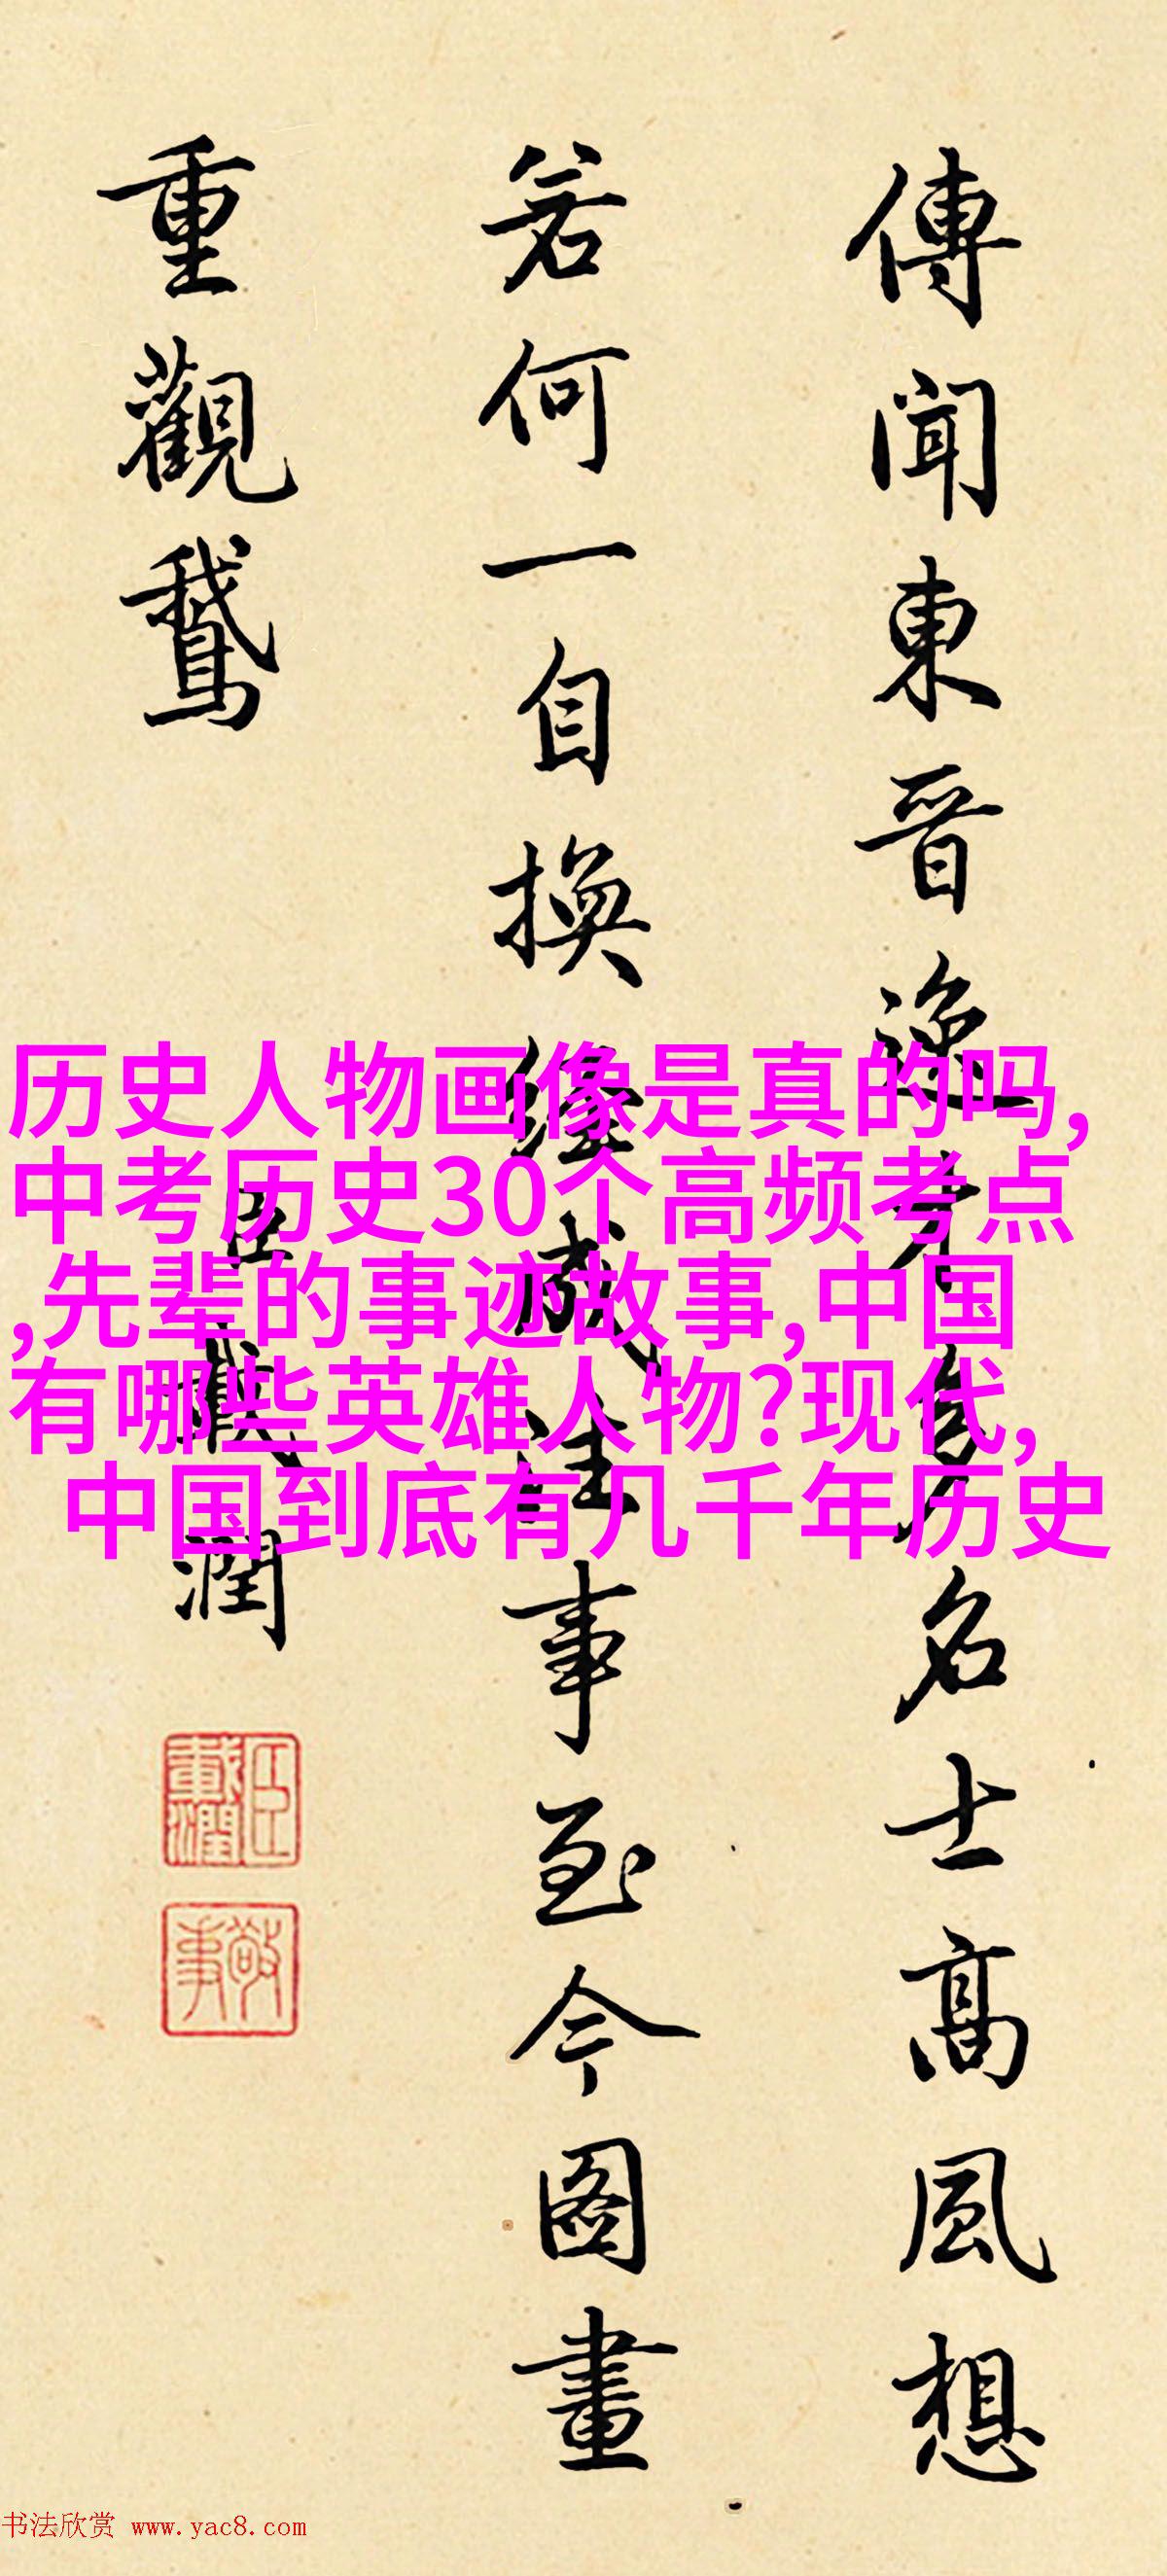 傳聞東晉逸才多名士高風想
若何一自換經成往事至今圖畫
重觀鵞
臣戴潤
历史人物画像是真的吗,
中考历史30个高频考点
,先辈的事迹故事,中国
有哪些英雄人物?现代,
中国到底有几千年历史
书法欣赏 www.yac8.com